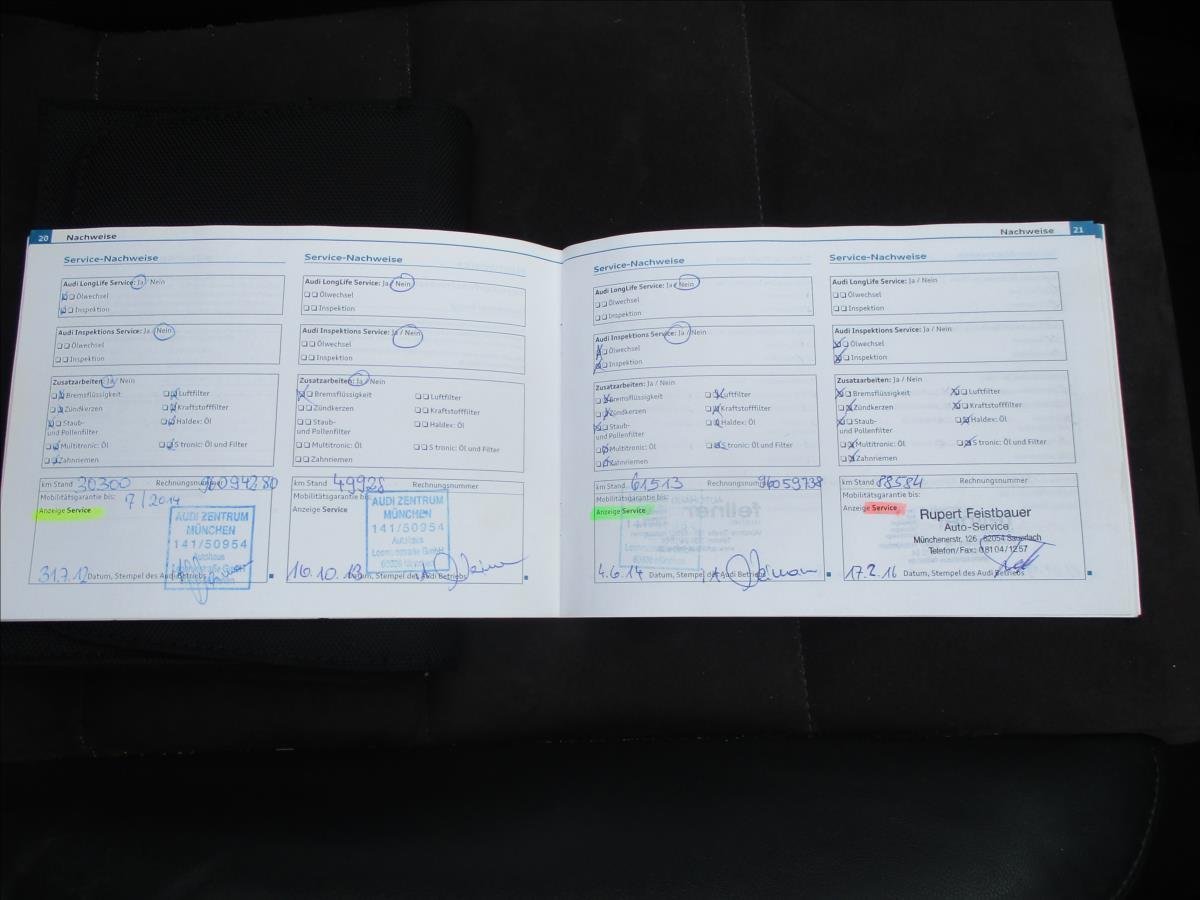 20 Nachweise
Service-Nachweise
Audi LongLife Service: Ja / Nein
Ölwechsel
Inspektion
Audi Inspektions Service: Ja / Nein
Ölwechsel
Inspektion
Zusatzarbeiten: Ja / Nein
Bremsflüssigkeit
Luftfilter
Zündkerzen
Kraftstofffilter
Staub-
und Pollenfilter
Haldex: Öl
Multitronic: Öl
S tronic: Öl und Filter
Zahnriemen
km Stand 30300 Rechnungsnummer
Mobilitätsgarantie bis: 7/2014
Anzeige Service
AUDI ZENTRUM
MÜNCHEN
141/50954
Autohaus
31.7.12 Datum, Stempel des Audi Betriebs
Service-Nachweise
Audi LongLife Service: Ja / Nein
Ölwechsel
Inspektion
Audi Inspektions Service: Ja / Nein
Ölwechsel
Inspektion
Zusatzarbeiten: Ja / Nein
Bremsflüssigkeit
Luftfilter
Zündkerzen
Kraftstofffilter
Staub-
und Pollenfilter
Haldex: Öl
Multitronic: Öl
S tronic: Öl und Filter
Zahnriemen
km Stand 49928 Rechnungsnummer
Mobilitätsgarantie bis:
Anzeige Service
AUDI ZENTRUM
MÜNCHEN
141/50954
Autohaus
16.10.13 Datum, Stempel des Audi Betriebs
Nachweise 21
Service-Nachweise
Audi LongLife Service: Ja / Nein
Ölwechsel
Inspektion
Audi Inspektions Service: Ja / Nein
Ölwechsel
Inspektion
Zusatzarbeiten: Ja / Nein
Bremsflüssigkeit
Luftfilter
Zündkerzen
Kraftstofffilter
Staub-
und Pollenfilter
Haldex: Öl
Multitronic: Öl
S tronic: Öl und Filter
Zahnriemen
km Stand 61513 Rechnungsnummer 96059738
Mobilitätsgarantie bis:
Anzeige Service
4.6.14 Datum, Stempel des Audi Betriebs
Service-Nachweise
Audi LongLife Service: Ja / Nein
Ölwechsel
Inspektion
Audi Inspektions Service: Ja / Nein
Ölwechsel
Inspektion
Zusatzarbeiten: Ja / Nein
Bremsflüssigkeit
Luftfilter
Zündkerzen
Kraftstofffilter
Staub-
und Pollenfilter
Haldex: Öl
Multitronic: Öl
S tronic: Öl und Filter
Zahnriemen
km Stand 88584 Rechnungsnummer
Mobilitätsgarantie bis:
Anzeige Service
Rupert Feistbauer
Auto-Service
Münchenerstr. 126 82054 Sauerlach
Telefon/Fax: 08104/1257
17.2.16 Datum, Stempel des Audi Betriebs